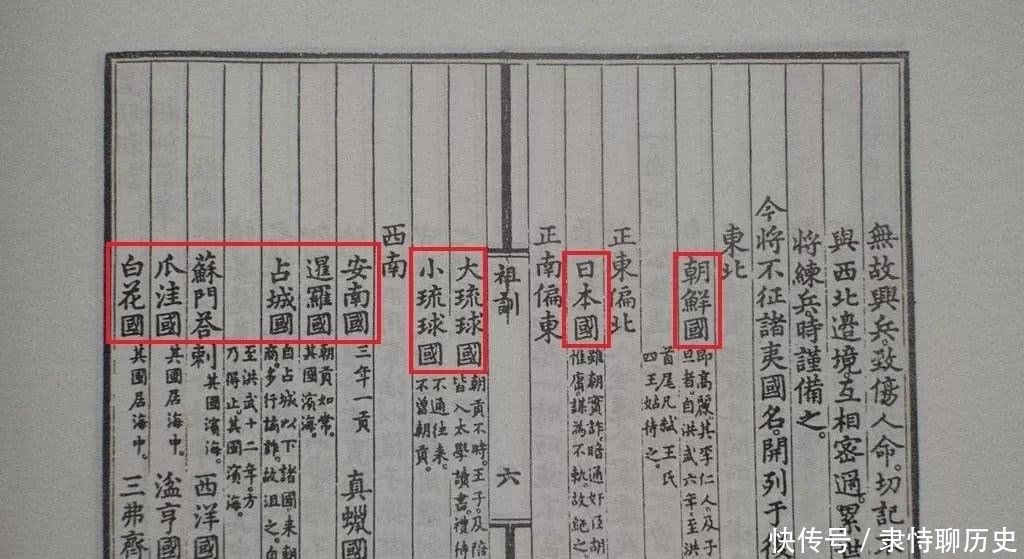 無故興兵。致傷人命。切記
與西北邊境互相密邇。累
將練兵。時謹備之。
今將不征諸夷國名。開列于
東北
朝鮮國 即高麗其李仁人。及子
旦者。自洪武六年至洪
首尾凡弒王氏
四王。姑待之。
正東偏北
日本國 雖朝實詐。暗通奸臣胡
惟庸。謀為不軌。故絕之。
正南偏東
祖訓 六
大琉球國 朝貢不時。王子。及陪
皆入太學讀書。禮待
小琉球國 不通往來。
不曾朝貢。
西南
安南國 三年一貢 真蠟國
暹羅國 朝貢如常。
其國濱海。
占城國 自占城以下諸國。來朝
商。多行譎詐。故沮之。自
至洪武十二年。方
乃得止。其國濱海。
蘇門荅剌 其國濱海。 西洋國
爪洼國 其國居海中。 湓亨國
白花國 其國居海中。 三弗齊
快传号/隶恃聊历史